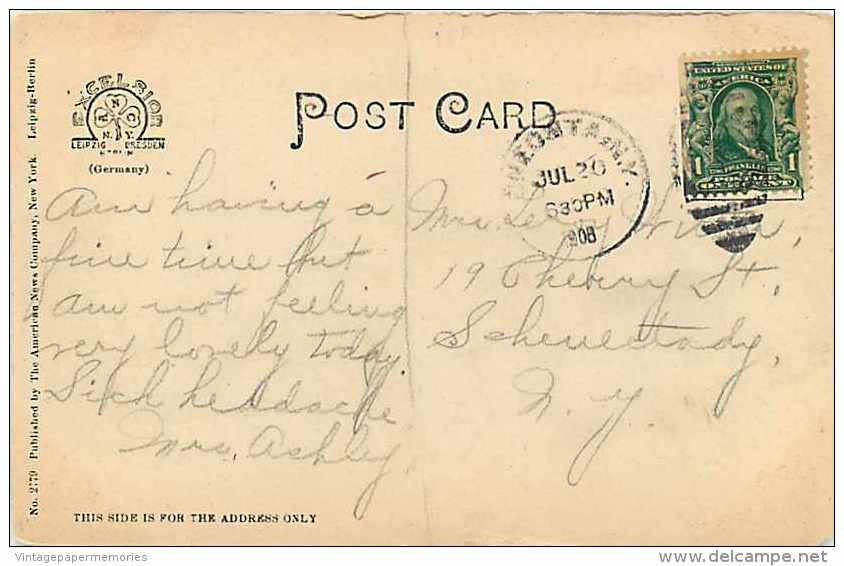 No. 2779 Published by The American News Company, New York. Leipzig-Berlin
EXCELSIOR
A N C
N. Y.
LEIPZIG DRESDEN
BERLIN
(Germany)
POST CARD
ONEONTA, N.Y.
JUL 20
630PM
1908
UNITED STATES OF
AMERICA
1 1
FRANKLIN
Am having a
fine time but
am not feeling
very lovely today.
Sick headache
Mrs. Ashley.
Mrs. Leroy
19 Cherry St.,
Schenectady,
N. Y.
THIS SIDE IS FOR THE ADDRESS ONLY
Vintagepapermemories
delcampe.net